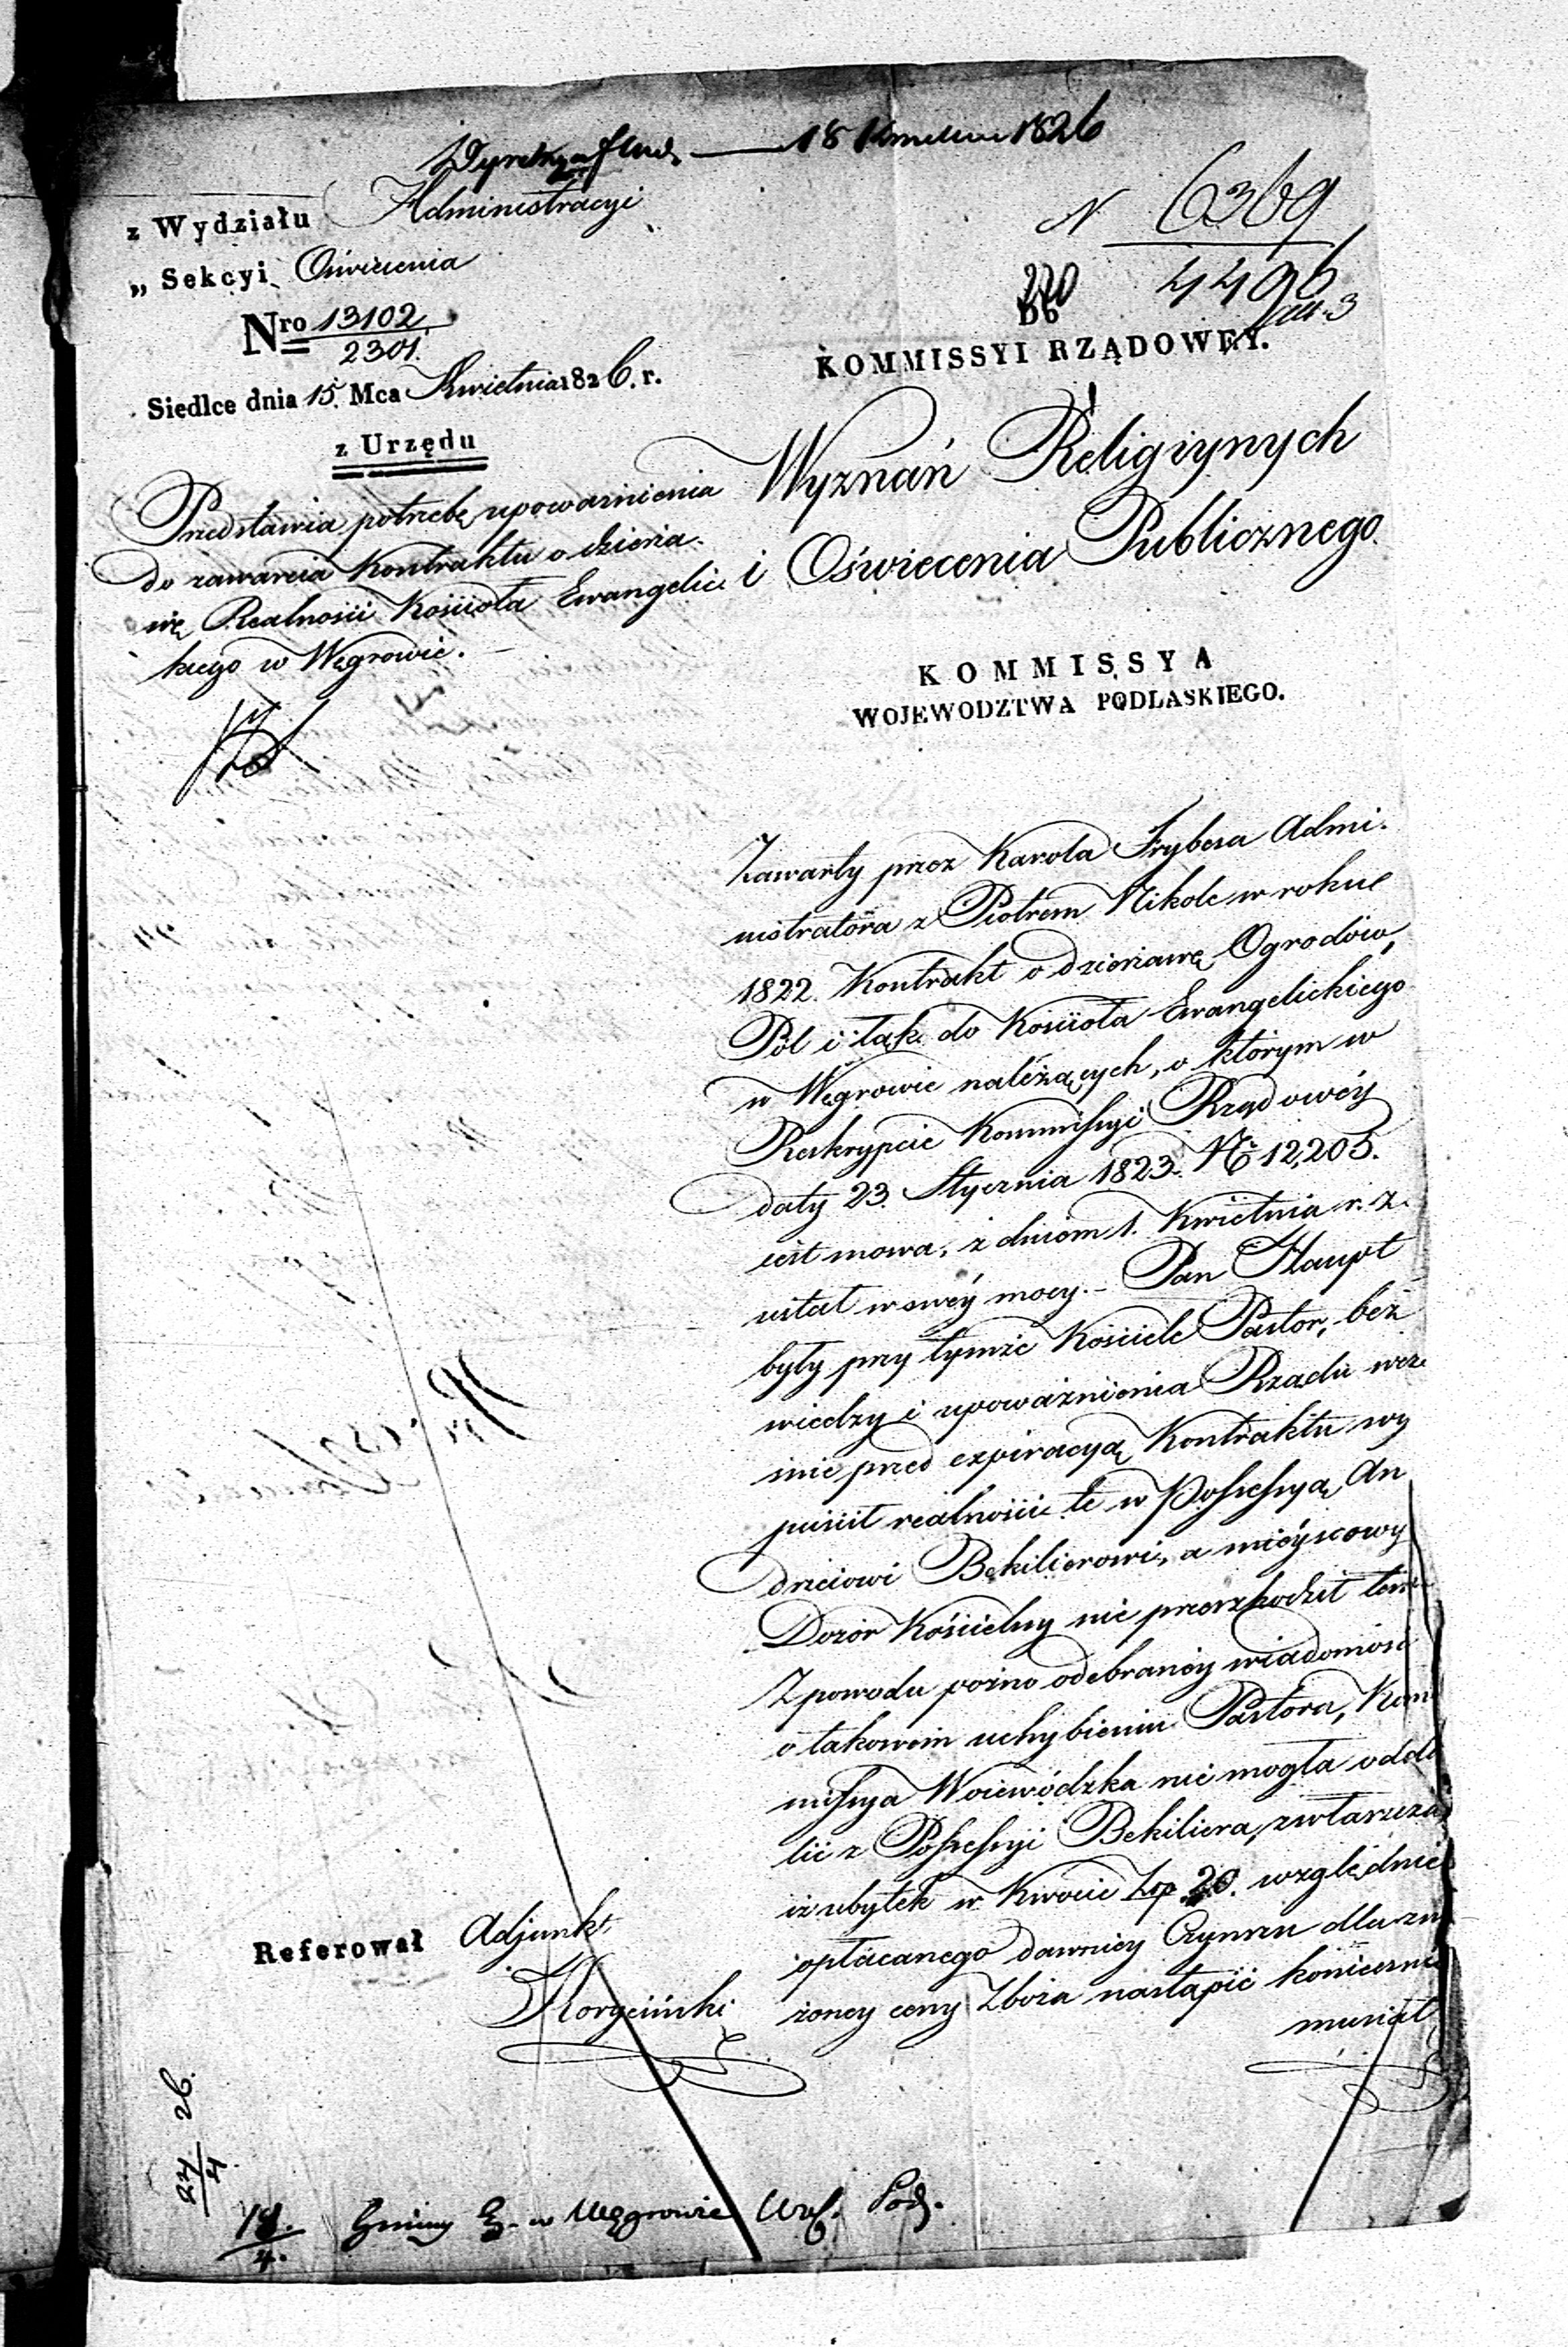 18 Kwietnia 1826
z Wydziału Administracyi
„ Sekcyi Oświecenia
Nro 13102
2301.
Siedlce dnia 15. Mca Kwietnia 1826. r.
z Urzędu
Przedstawia potrzebę upoważnienia
do zawarcia Kontraktu o dzierża-
wę Realności Kościoła Ewangelic-
kiego w Węgrowie.
N 6369
4496
220
KOMMISSYI RZĄDOWEY.
Wyznań Religiynych
i Oświecenia Publicznego.
KOMMISSYA
WOJEWODZTWA PODLASKIEGO.
Zawarty przez Karola Frybesa Admi-
nistratora z Piotrem Nikole w roku
1822. Kontrakt o dzierżawę Ogrodów,
Pól i łąk do Kościoła Ewangelickiego
w Węgrowie należących, o którym w
Reskrypcie Kommissyi Rządowéy
daty 23. Stycznia 1823. No 12,205.
iest mowa, z dniem 1. Kwietnia r. z.
ustał w swéy mocy. - Pan Haupt
były przy tymże Kościele Pastor, bez
wiedzy i upoważnienia Rządu wcze
śnie przed expiracyą Kontraktu wy
puścił realności te w Possessyą An
drzeiowi Bekilierowi, a mieyscowy
Dozór Kościelny nie przeszkodził temu
Z powodu poźno odebranéy wiadomości
o takowém uchybieniu Pastora, Kom
missya Woiewódzka nie mogła odda
lić z Possessyi Bekiliera, zwłaszcza
iż ubytek w Kwocie Złp 20. względnie
opłacanego dawniéy Czynszu dla zni
żoney ceny Zboża nastąpić koniecznie
musiał
Referował Adjunkt
Koryciński
24/4 26.
18./4. Gminy E. w Węgrowie Woj. Pod.